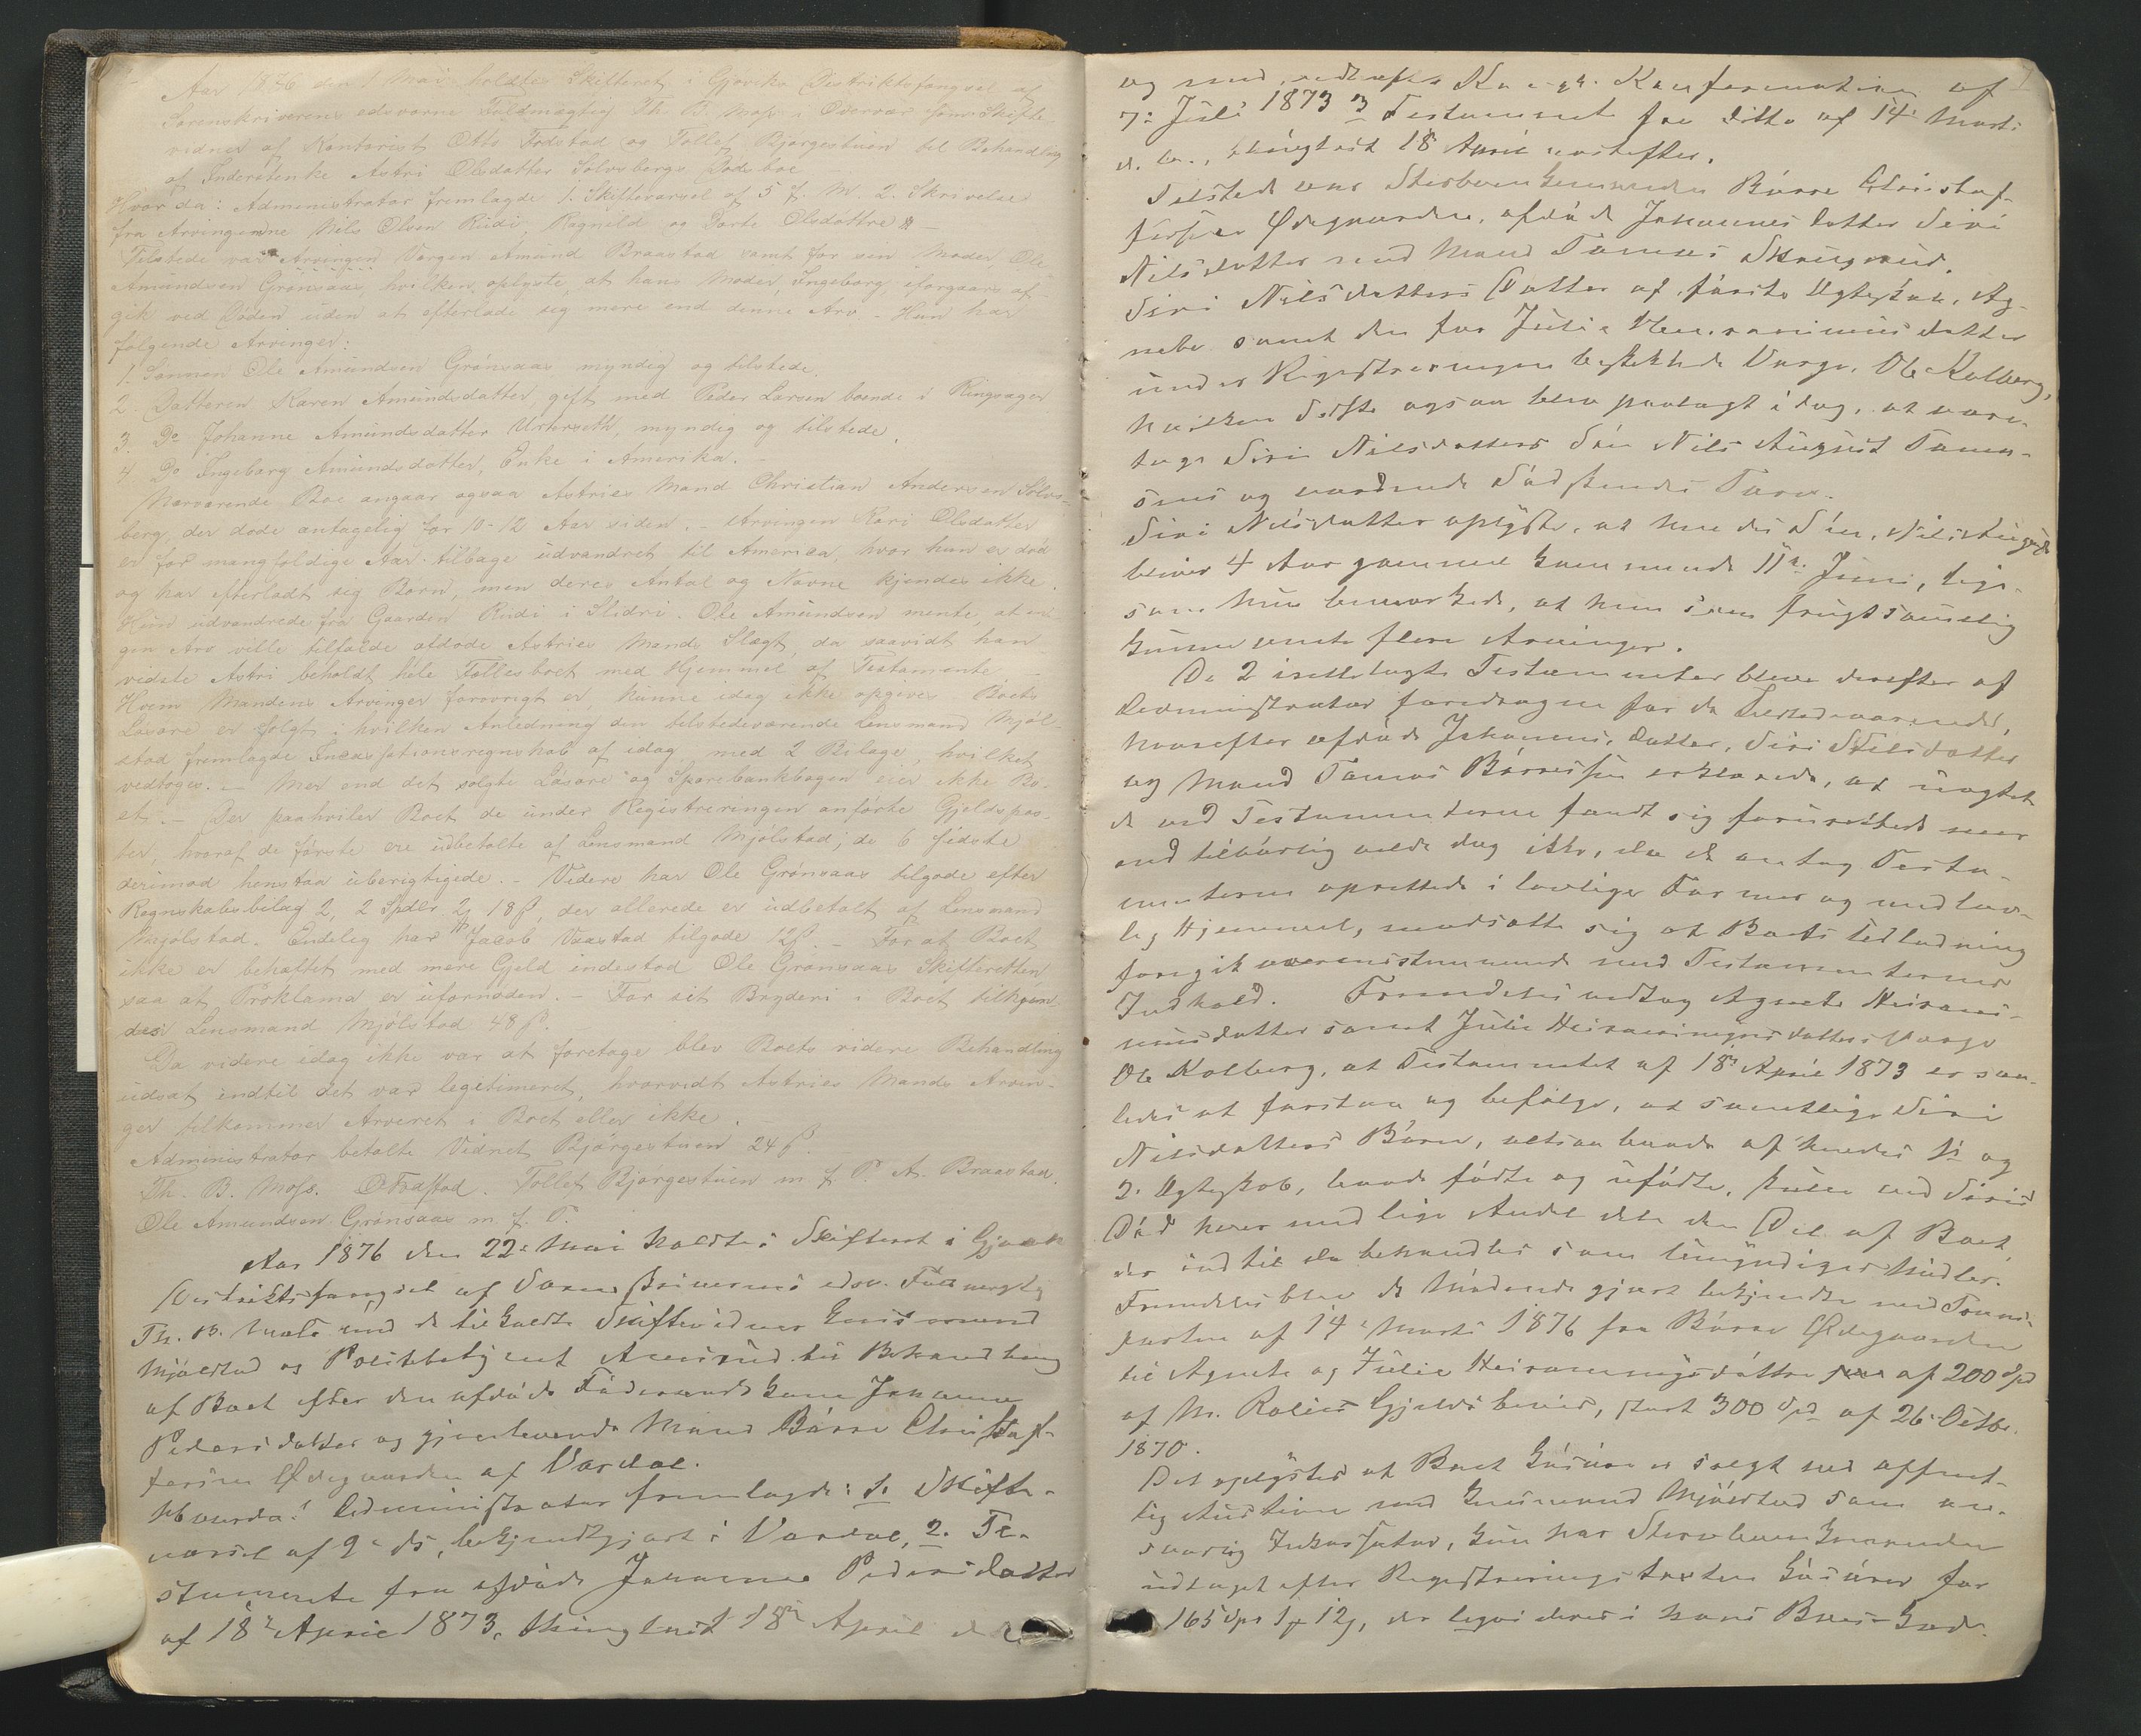 Aar 1876 den 1 Mai holdtes Skifteret i Gjøviks Distriktsfængsel af
Sorenskriverens edsvorne Fuldmægtig Th. B. Moss i Overvær som Skifte-
vidner af Kontorist Otto Fodstad og Tollef Bjørgestuen til Behandling
af Inderstenke Astri Olsdatter Solvsbergs Dødsboe
Hvor da: Administrator fremlagde 1. Skiftevarsel af 5 f. M. 2. Skrivelse
fra Arvingerne Nils Olsen Rudi, Ragnild og Dorte Olsdattre
Tilstede var Arvingen Vergen Amund Braastad samt for sin Moder, Ole
Amundsen Grønsaas, hvilken oplyste, at hans Moder, Ingeborg iforgaars af-
gik ved Døden uden at efterlade sig mere end denne Arv - Hun har
følgende Arvinger:
1. Sønnen Ole Amundsen Grønsaas myndig og tilstede.
2 Datteren Karen Amundsdatter, gift med Peder Larsen boende i Ringsager
3. Do Johanne Amundsdatter, myndig og tilstede.
4 Do Ingeborg Amundsdatter, Enke i Amerika. -
Nærværende Boe angaar ogsaa Astries Mand Christian Andersen Solvs-
berg, der døde antagelig for 10-12 Aar siden. - Arvingen Kari Olsdatter
er for mangfoldige Aar tilbage udvandret til America, hvor hun er død
og har efterladt sig Børn, men deres Antal og Navne kjendes ikke.
Hun udvandrede fra Gaarden Rudi i Slidri. Ole Amundsen mente, at in-
gen Arv ville tilfalde afdøde Astries Mands Slægt, da saavidt han
vidste Astri beholdt hele Fællesboet med Hjemmel af Testamente
Hvem Mandens Arvinger forøvrigt er, kunne idag ikke opgives. Boets
Løsøre er solgt i hvilken Anledning den tilstedeværende Lensmand Mjøl-
stad fremlagde Incassationsregnskab af idag med 2 Bilage, hvilket
vedtoges. - Mer end det solgte Løsøre og Sparebankbogen eier ikke Bo-
et. - Der paahviler Boet de under Registreringen anførte Gjeldspos-
ter, hvoraf de første ere udbetalte af Lensmand Mjølstad; de 6 sidste
derimod henstaa uberigtigede. - Videre har Ole Grønsaas tilgode efter
Regnskabsbilag 2, 2 Spdlr 2 18 ß, der allerede er udbetalt af Lensmand
Mjølstad. Endelig har Jacob Vaastad tilgode 12 ß. - For at Boet
ikke er behæftet med mere Gjeld indestod Ole Grønsaas Skifteretten
saa at Proklama er ufornøden. - For sit Bryderi i Boet tilkjen-
des Lensmand Mjølstad 48 ß.
Da videre idag ikke var at foretage blev Boets videre Behandling
udsat indtil det var legitimeret, hvorvidt Astries Mands Arvin-
ger tilkommer Arveret i Boet eller ikke.
Administrator betalte Vidnet Bjørgestuen 24 ß.
Th. B. Moss. O Fodstad. Tollef Bjørgestuen m. f. P. A. Braastad.
Ole Amundsen Grønsaas m. f. P.
Aar 1876 den 22 Mai holdtes Skifteret i Gjøvik
Distriktsfængsel af Sorenskriverens edsv. Fuldmægtig
Th. B. Moss med de tilkaldte Skiftevidner Lensmand
Mjølstad og Politibetjent til Behandling
af Boet efter den afdøde Føderaadskone Johanne
Pedersdatter og gjenlevende Mand Børre Christof-
fersen Ødegaarden af Vardal.
Hvorda: Administrator fremlagde: 1. Skifte-
varsel af 9 ds, bekjendtgjort i Vardal, 2. Te-
stamente fra afdøde Johanne Pedersdatter
af 18 April 1873, thinglæst 18 April
og med vedhæftet Kongl. Konfirmation af
7. Juli 1873 3 Testamente fra ditto af 14 Marts
d. A., thinglæst 18 April næstefter.
Tilstede var Sterboenkemanden Børre Christof-
fersen Ødegaarden, afdøde Johannes Datter Siri
Nilsdatter med Mand Tomas Skaugerud,
Siri Nilsdatters Datter af første Ægteskab, Ag-
nete samt den for Julie datter
under Registreringen beskikkede Verge, Ole Kolberg,
hvilken sidste ogsaa blev paalagt i dag, at vare-
tage Siri Nilsdatters Søn Nils August Toma-
sens og vordende Sødskendes Tarv.
Siri Nilsdatter oplyste, at hendes Søn, Nils August
bliver 4 Aar gammel kommende 11. Juni, lige-
som hun bemærkede, at hun som frugtsommelig
kunne vente flere Arvinger.
De 2 irettelagte Testamenter bleve derefter af
Administrator foredragne for de Tilstedeværende,
hvorefter afdøde Johannes Datter, Siri Nilsdatter
og Mand Tomas Børresen erklærede, at uagtet
de ved Testamenterne fandt sig forurettede mer
end tilbørlig vilde dog ikke, da de antog Testa-
menterne oprettede i lovlige Former og med lov-
lig Hjemmel, modsætte sig at Boets Udlodning
foregik overensstemmende med Testamenternes
Indhold. Fremdeles vedtog Agnete
datter samt Julie datters Verge
Ole Kolberg, at Testamentet af 18 April 1873 er saa-
ledes at forstaa og befølge, at samtlige Siri
Nilsdatters Børn, altsaa baade af hendes 1 og
2. Ægteskab, baade fødte og ufødte, skulle ved Siris
Død have med lige Andel dele den Del af Boet,
der indtil da behandles som Umyndiges Midler.
Fremdeles blev de Mødende gjort bekjendte med Trans-
porten af 14 Marts 1876 fra Børre Ødegaarden
til Agnete og Julie døttre af 200 Spd
af M. Gjeldsbevis, stort 300 Spd af 26 Octbr.
1870.
Det oplystes at Boets Løsøre er solgt ved offent-
lig Auction med Lensmand Mjølstad som an-
svarlig Inkassator, kun har Sterboenkemanden
udtaget efter Registreringstaxten Løsøre for
165 Spd 1 12, der ligeledes i hans